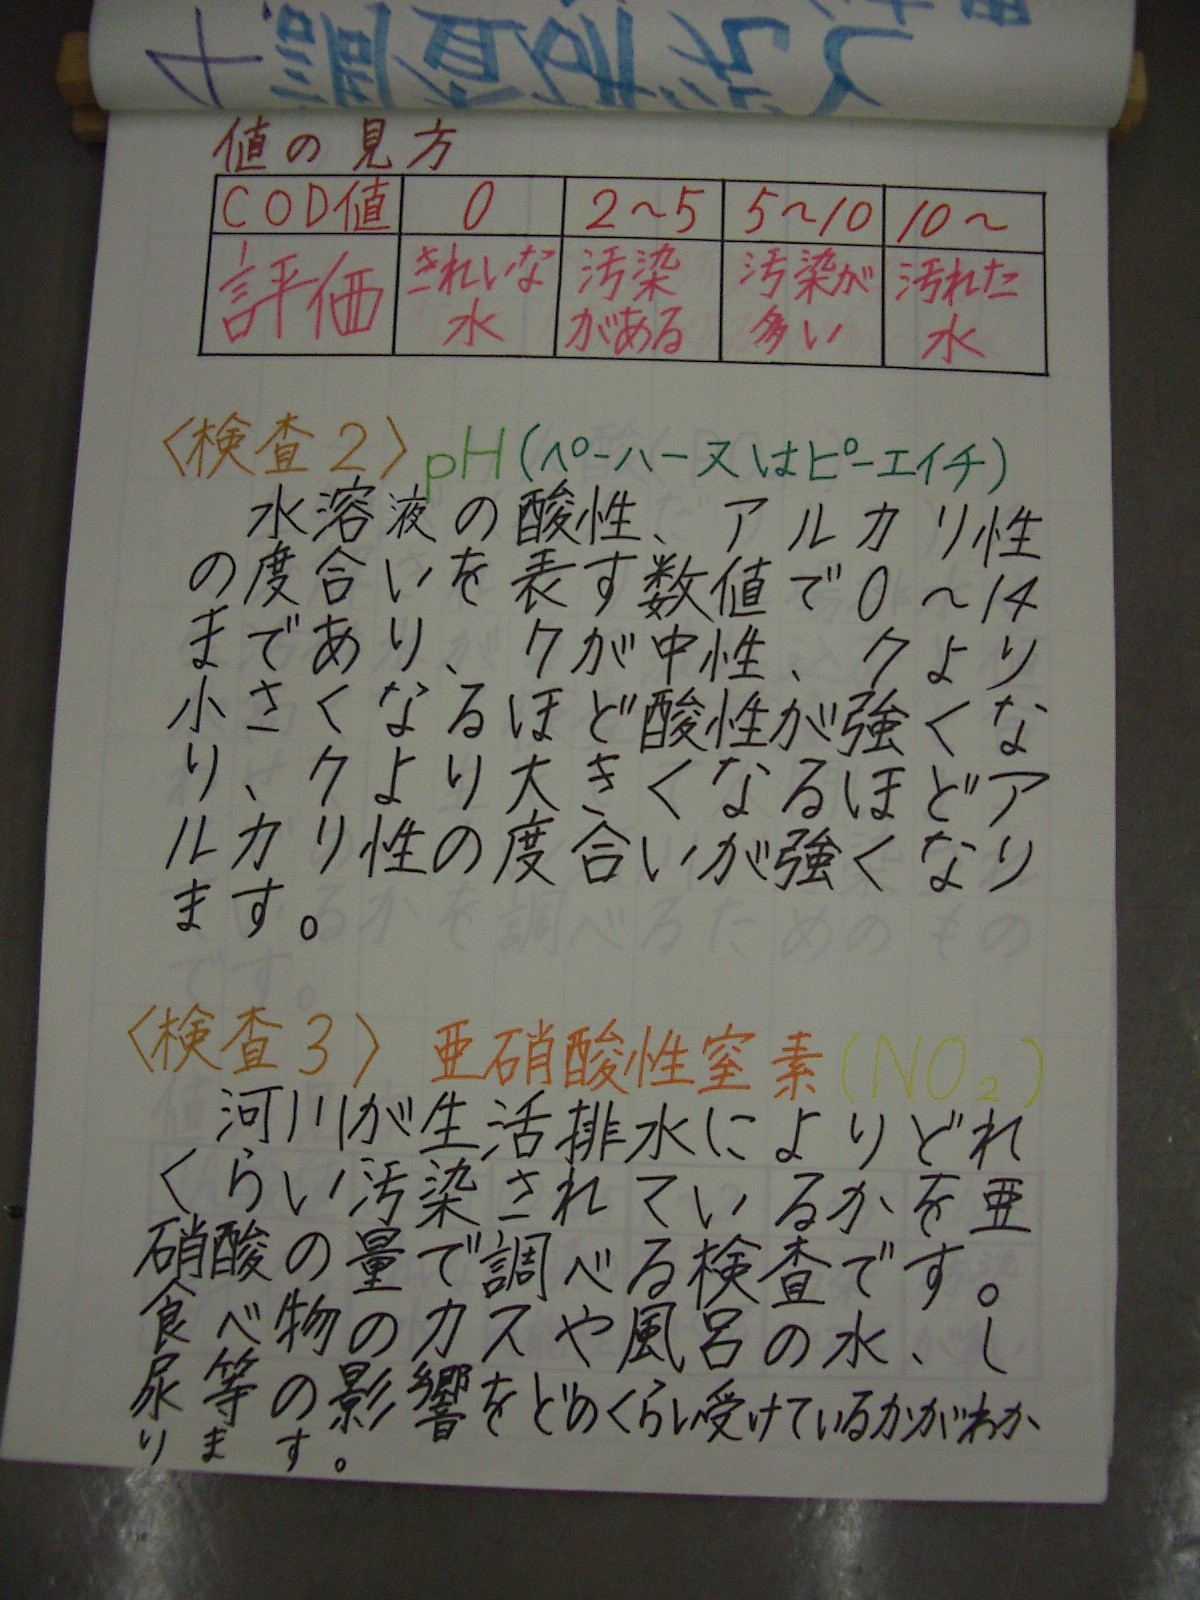 値の見方
COD値 0 2～5 5～10 10～
評価 きれいな水 汚染がある 汚染が多い 汚れた水
〈検査2〉pH(ペーハー又はピーエイチ)
水溶液の酸性、アルカリ性
の度合いを表す数値で0～14
まであり、7が中性、7より
小さくなるほど酸性が強くな
り、7より大きくなるほどア
ルカリ性の度合いが強くなり
ます。
〈検査3〉亜硝酸性窒素(NO₂)
河川が生活排水によりどれ
くらい汚染されているかを亜
硝酸の量で調べる検査です。
食べ物のカスや風呂の水、し
尿等の影響をどのくらい受けているかがわか
ります。